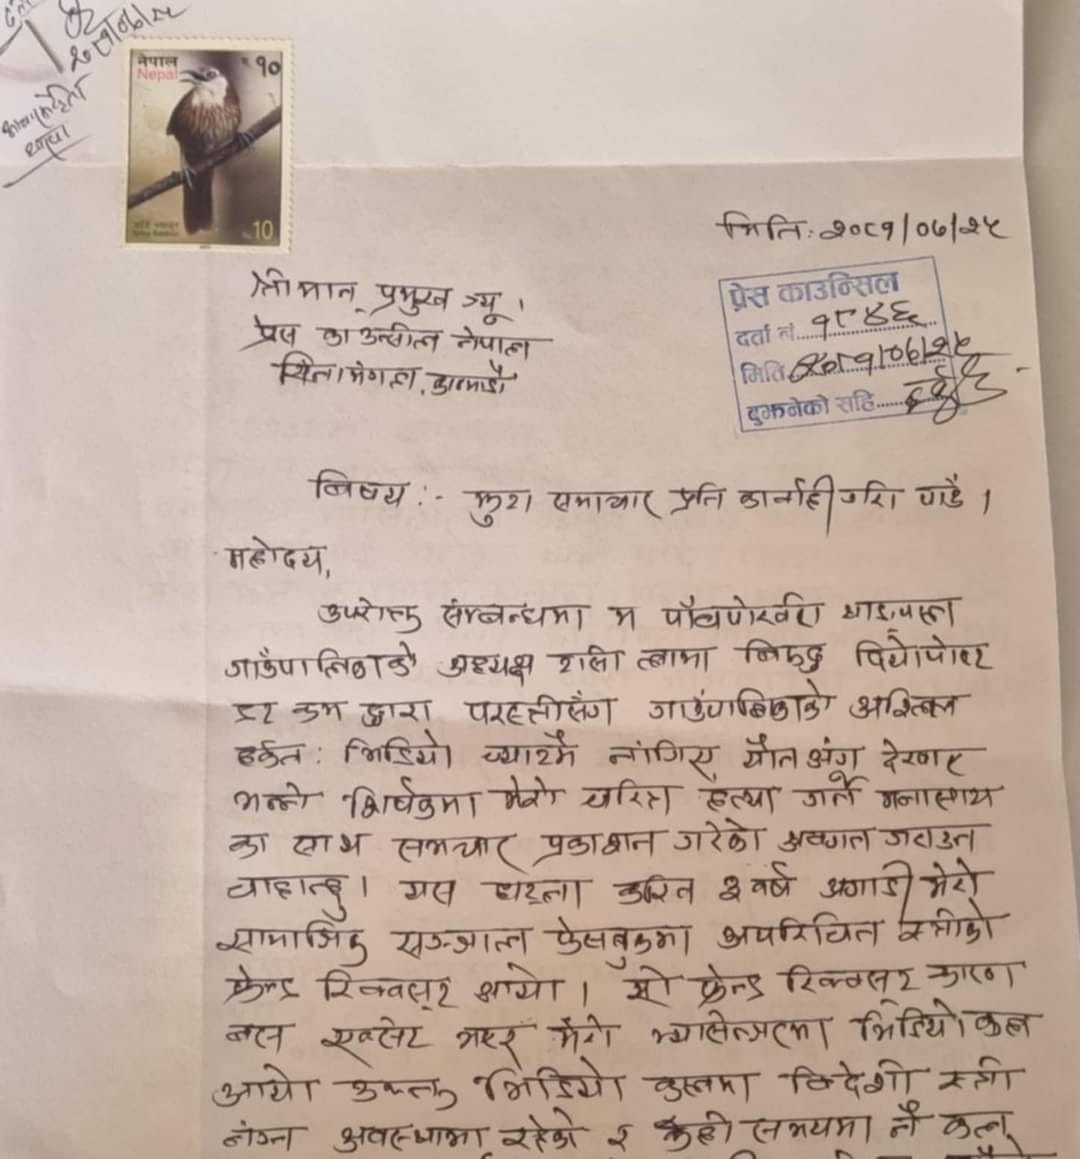 २०८१/०६/२५
नेपाल
Nepal
१०
10
मिति: २०८१/०६/२५
श्रीमान् प्रमुख ज्यू ।
प्रेस काउन्सील नेपाल
सिनामंगल, काठमाडौं
प्रेस काउन्सिल
दर्ता नं. १८४६
मिति २०८१/०६/२५
बुझ्नेको सहि
बिषय :- झुटा समाचार प्रति कार्वाही गरि पाउँ ।
महोदय,
उपरोक्त सम्बन्धमा म पाँचपोखरी थाङपाल
गाउँपालिकाको अध्यक्ष टासी लामा बिरुद्ध
डट कम द्वारा परस्त्रीसँग गाउँपालिकाको
हर्कत : भिडियो च्याटमै नांगिए यौन अंग देखाए
भन्ने शिर्षकमा मेरो चरित्र हत्या गर्ने मनासाय
का साथ समचार प्रकाशन गरेको अवगत गराउन
चाहान्छु । यस घटना करिब ३ वर्ष अगाडी मेरो
सामाजिक सञ्जाल फेसबुकमा अपरिचित स्त्रीको
फ्रेन्ड रिक्वस्ट आयो । सो फ्रेन्ड रिक्वस्ट कारण
बस एक्सेट भएर मेरो म्यासेन्जरमा भिडियो कल
आयो उक्त भिडियो कलमा विदेशी स्त्री
नग्न अवस्थामा रहेको र केही समयमा नै कल